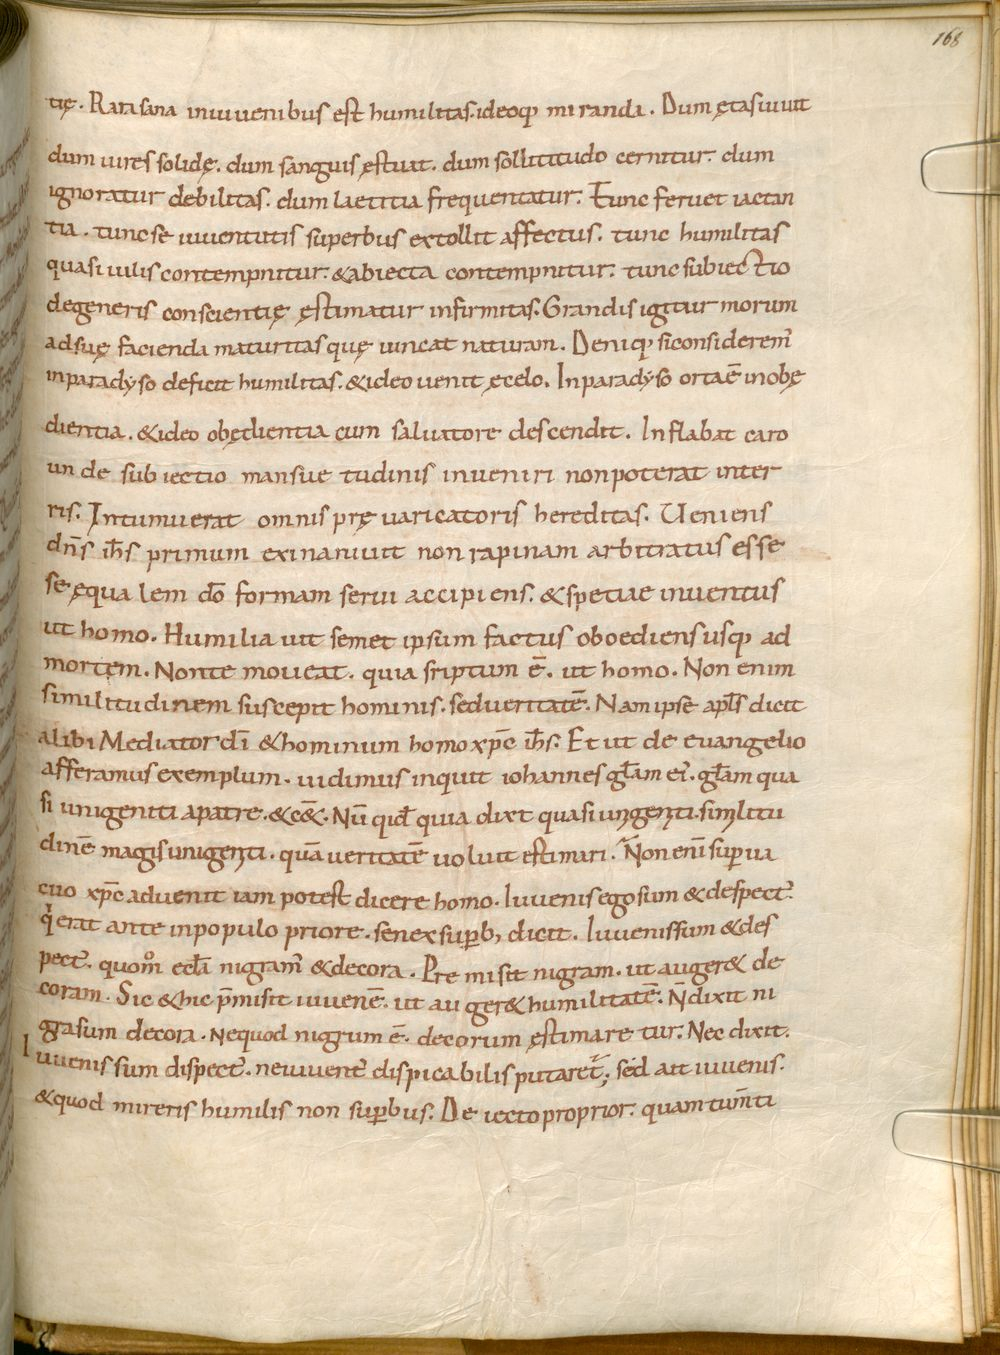 168
tię. Rara sana iniuuenibus est humilitas. ideoq; miranda. Dum ętas uiuit
dum uires solidę. dum sanguis ęstuat. dum sollicitudo cernitur. dum
ignoratur debilitas. dum laetitia frequentatur. Tunc feruet iactan
tia. tunc se iuuentutis superbus extollit affectus. tunc humilitas
quasi uilis contempnitur. & abiecta contempnitur. tunc subiectio
degeneris conscientię ęstimatur infirmitas. Grandis igitur morum
adsuę facienda maturitas quę uincat naturam. Deniq; si considerem̄
in paradyso deficit humilitas. & ideo uenit ęcelo. In paradyso orta ē inobę
dientia. & ideo obędientia cum saluatore descendit. Inflabat caro
unde subiectio mansuetudinis inueniri non poterat inter
ris. Intumuerat omnis pręuaricatoris hereditas. Ueniens
dn̄s ih̄s primum exinaniuit non rapinam arbitratus esse
se ęqualem dō formam serui accipiens. & spetiae inuentus
ut homo. Humiliauit semet ipsum factus oboediens usq; ad
mortem. Non te moueat. quia sriptum ē. ut homo. Non enim
similitudinem suscepit hominis. sed ueritatē. Nam ipse apl̄s dicit
alibi Mediator dī & hominum homo xp̄c ih̄s. Et ut de euangelio
afferamus exemplum. uidimus inquit iohannes gl̄am ei᷒. gl̄am qua
si unigeniti a patre. & c̄&. Nū qid̄ quia dixit quasi unigeniti. similitu
dinē magis unigeniti. quā ueritatē uoluit estimari. Non eni᷒ superua
cuo xp̄c aduenit iam potest dicere homo. Iuuenis ego sum & despect᷒.
qi erat ante in populo priore. senex superb; dicit. Iuuenis sum & des
pect᷒. quom̊ eccl̄a nigram̄ & decora. Premisit nigram. ut auger& de
coram. Sic & hic p̄misit iuuenē. ut auger& humilitatē. N̄ dixit ni
gra sum decora. Ne quod nigrum ē. decorum ęstimaretur. Nec dixit.
Iuuenis sum dispect᷒. ne iuuent᷒ dispicabilis putaret᷒; sed ait iuuenis.
& quod mireris humilis non superbus. De iecto proprior. quam tum̄ti